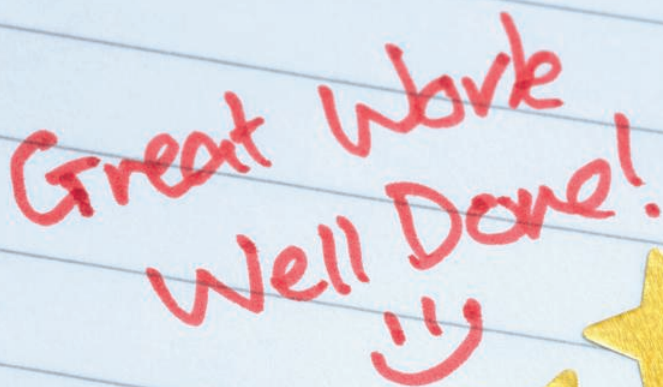 Great Work
Well Done!